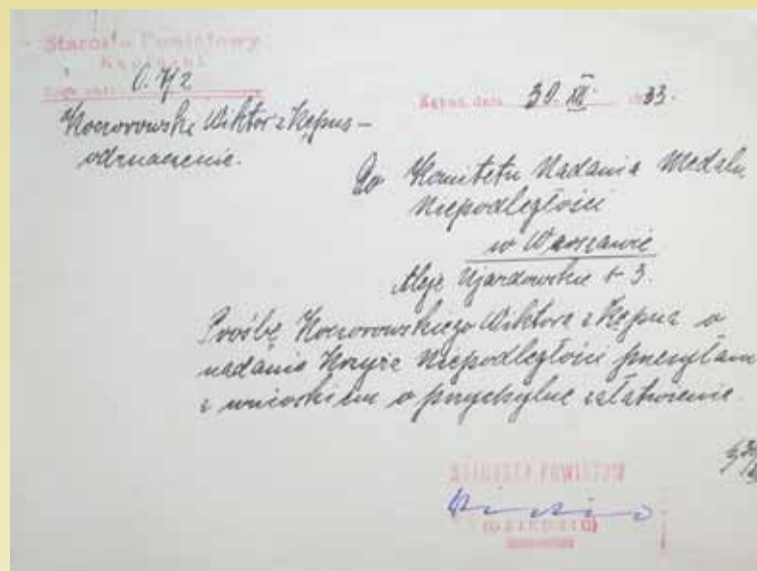 Starosta Powiatowy
Kępiński
O. 7/2
Kępno, dnia 30. XII. 1933.
Kocorowski Wiktor z Kępna –
odznaczenie.
Do Komitetu Nadania Medalu
Niepodległości
w Warszawie
Aleje Ujazdowskie 3.
Prośbę Kocorowskiego Wiktora z Kępna o
nadanie Krzyża Niepodległości przesyłam
z wnioskiem o przychylne załatwienie.
STAROSTA POWIATOWY